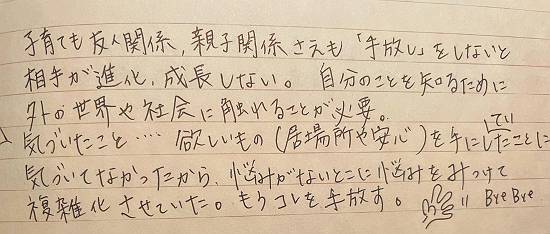 子育ても友人関係、親子関係さえも「手放し」をしないと
相手が進化、成長しない。 自分のことを知るために
外の世界や社会に触れることが必要。
気づいたこと‥‥ 欲しいもの(居場所や安心)を手にしていたことに
気づいてなかったから、悩みがないとこに悩みをみつけて
複雑化させていた。もうコレを手放す。 Bye Bye